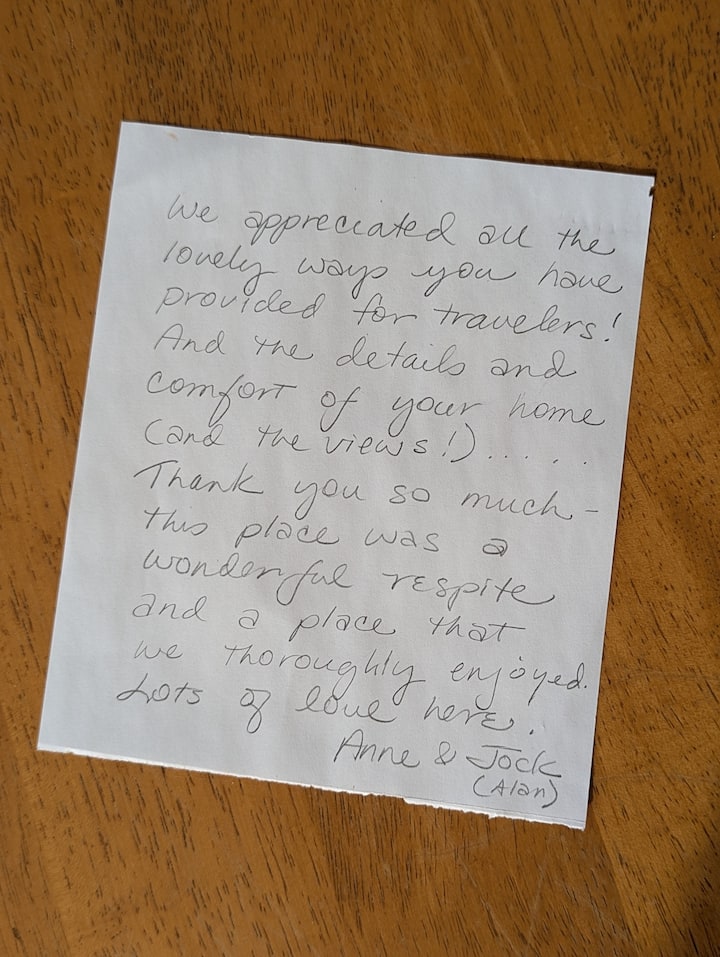 We appreciated all the
lovely ways you have
provided for travelers!
And the details and
comfort of your home
(and the views!).....
Thank you so much -
this place was a
wonderful respite
and a place that
we thoroughly enjoyed.
Lots of love here.
Anne & Jock
(Alan)